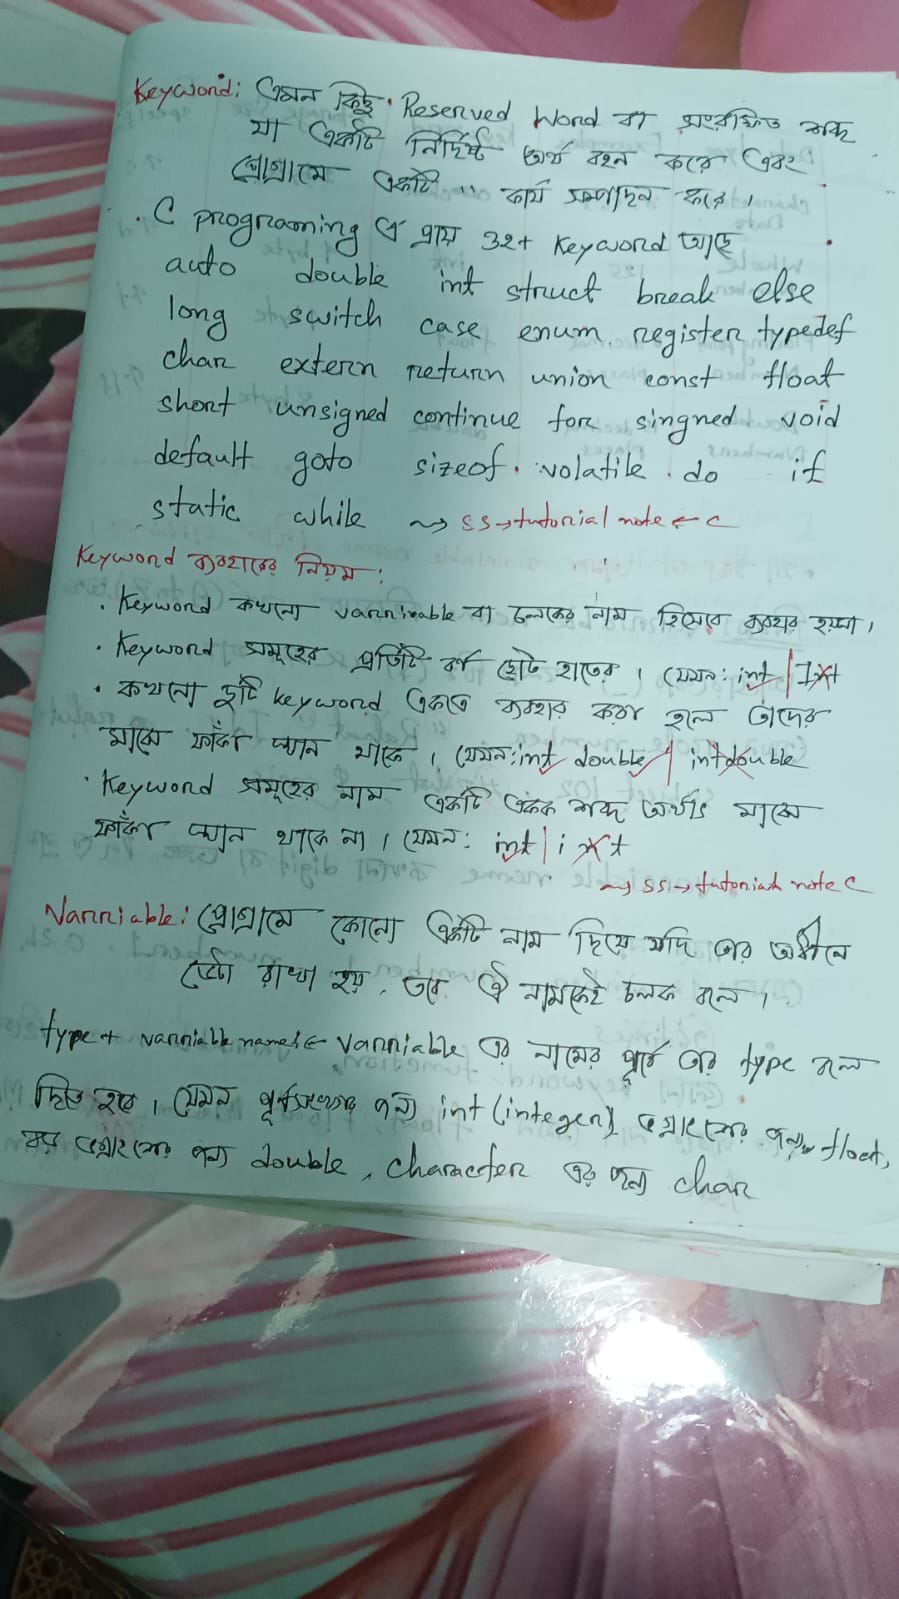 Keyword: এমন কিছু Reserved Word বা সংরক্ষিত শব্দ
যা একটি নির্দিষ্ট অর্থ বহন করে এবং
প্রোগ্রামে একটি " কার্য সম্পাদন করে।
· C programing এ প্রায় 32+ Keyword আছে
auto double int struct break else
long switch case enum register typedef
char extern return union const float
short unsigned continue for singned void
default goto sizeof volatile do if
static while ~> SS→tutorial note ← C
Keyword ব্যবহারের নিয়ম:
· Keyword কখনো varriable বা চলকের নাম হিসেবে ব্যবহার হয়না।
· Keyword সমূহের প্রতিটি বর্ণ ছোট হাতের। যেমন: int | Int
· কখনো দুটি keyword একত্রে ব্যবহার করা হলে তাদের
মাঝে ফাঁকা স্থান থাকে। যেমন: int double | intdouble
· Keyword সমূহের নাম একটি একক শব্দ অর্থাৎ মাঝে
ফাঁকা স্থান থাকে না। যেমন: int | i nt
~> SS→ tutorial note C
Varriable: প্রোগ্রামে কোনো একটি নাম দিয়ে যদি তার অধীনে
ডেটা রাখা হয়, তবে ঐ নামকেই চলক বলে।
type + varriable name: ← Varriable এর নামের পূর্বে তার type বলে
দিতে হবে। যেমন পূর্ণসংখ্যার জন্য int (integer), ভগ্নাংশের জন্য float,
বড় ভগ্নাংশের জন্য double, character এর জন্য char